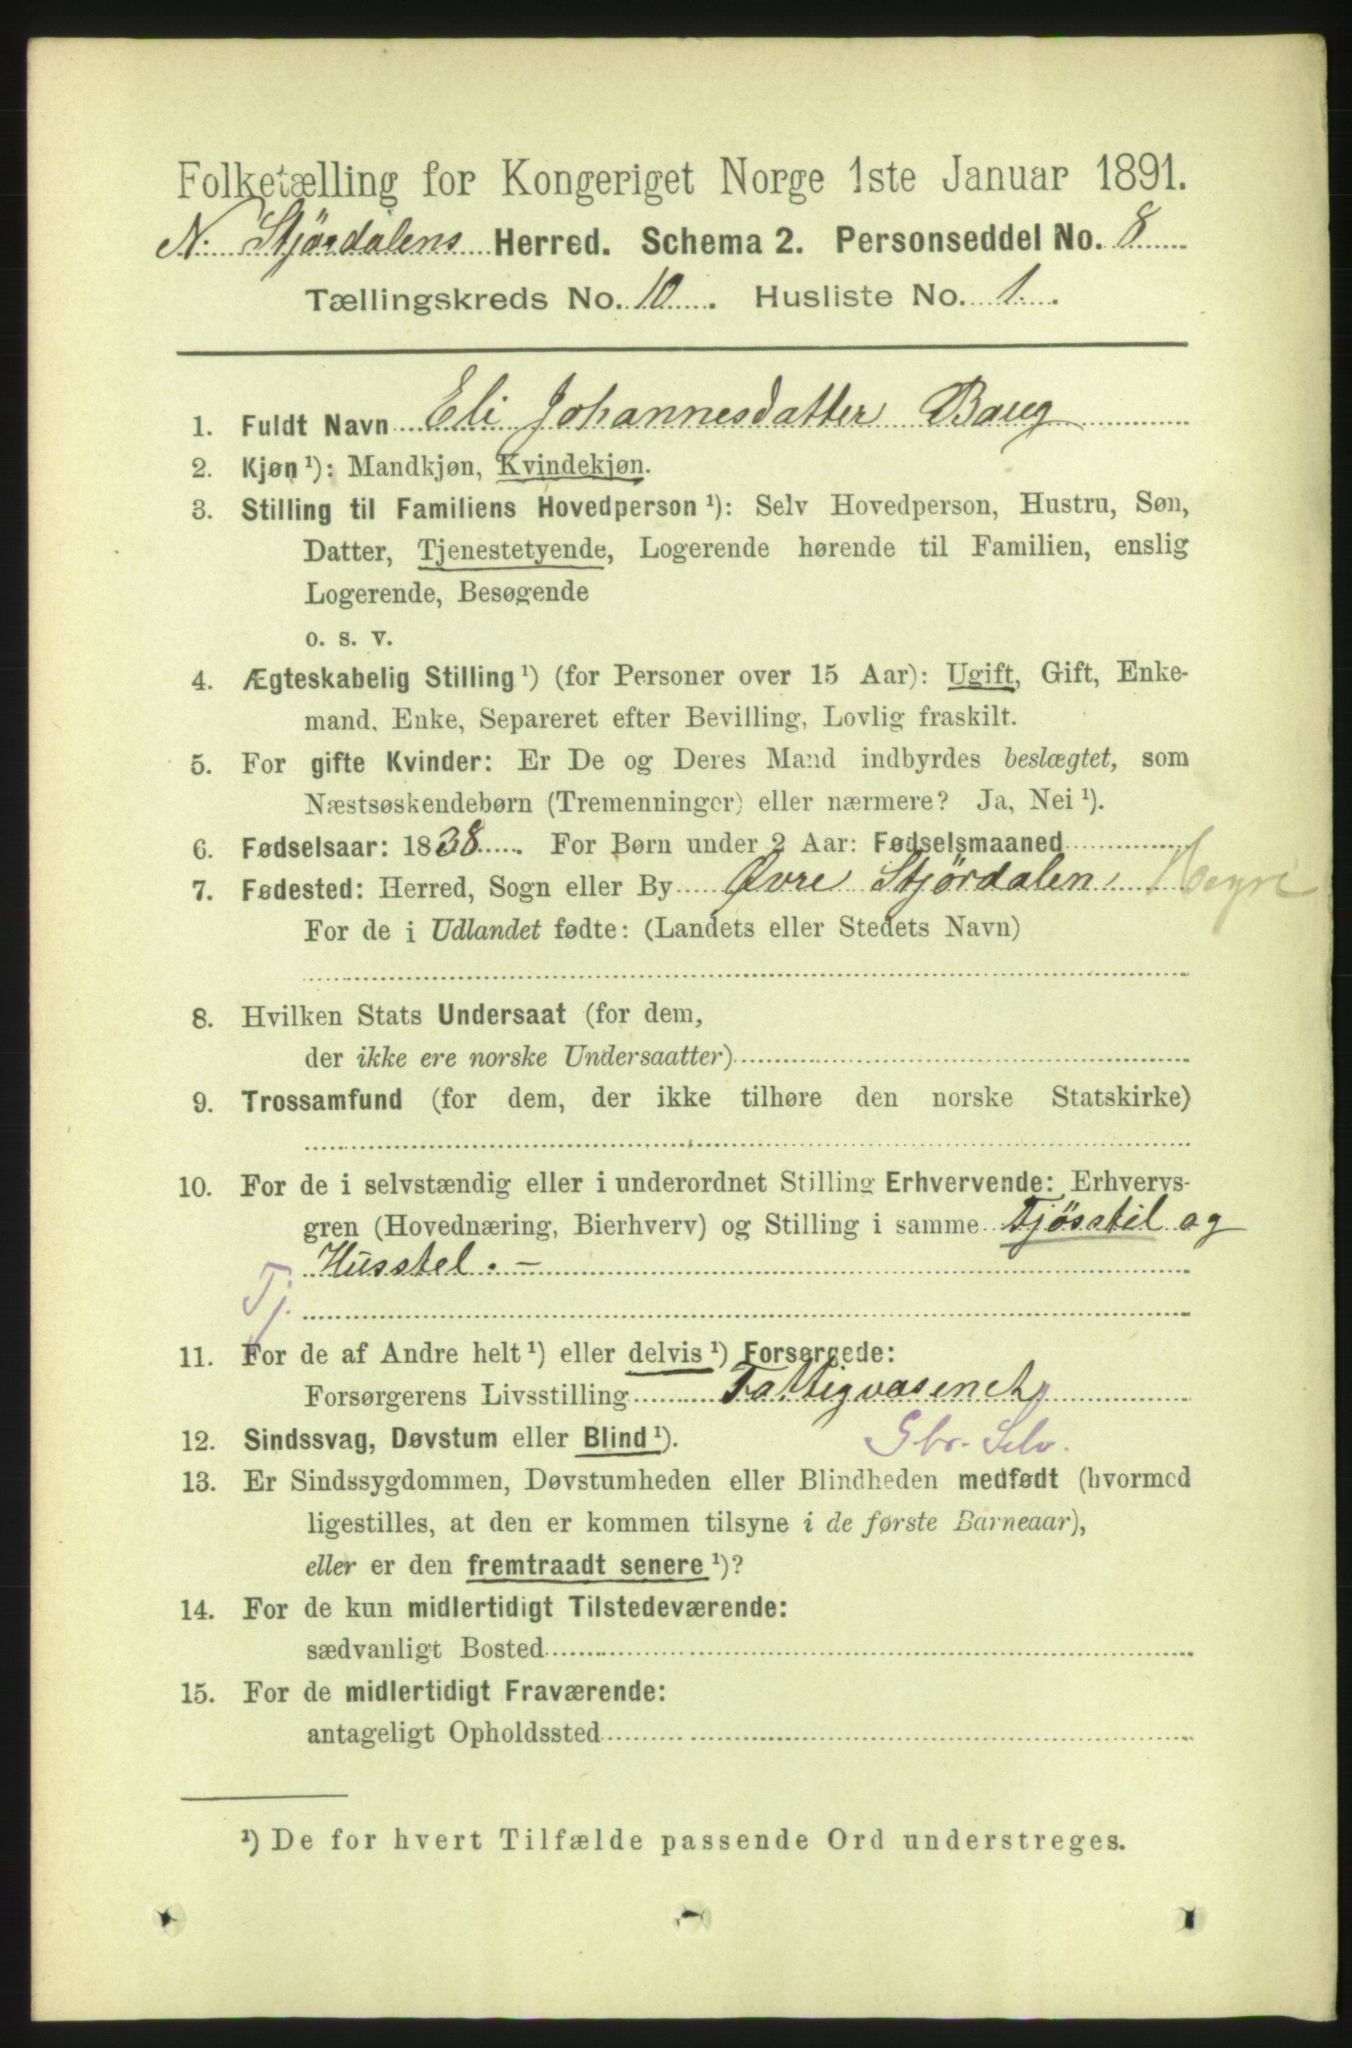 Folketælling for Kongeriget Norge 1ste Januar 1891.
N. Stjørdalens Herred. Schema 2. Personseddel No. 8
Tællingskreds No. 10. Husliste No. 1.
1. Fuldt Navn Eli Johannesdatter Baug
2. Kjøn ¹): Mandkjøn, Kvindekjøn.
3. Stilling til Familiens Hovedperson ¹): Selv Hovedperson, Hustru, Søn,
Datter, Tjenestetyende, Logerende hørende til Familien, enslig
Logerende, Besøgende
o. s. v.
4. Ægteskabelig Stilling ¹) (for Personer over 15 Aar): Ugift, Gift, Enke-
mand, Enke, Separeret efter Bevilling, Lovlig fraskilt.
5. For gifte Kvinder: Er De og Deres Mand indbyrdes beslægtet, som
Næstsøskendebørn (Tremenninger) eller nærmere? Ja, Nei ¹).
6. Fødselsaar: 1838. For Børn under 2 Aar: Fødselsmaaned
7. Fødested: Herred, Sogn eller By Øvre Stjørdalen Hegre
For de i Udlandet fødte: (Landets eller Stedets Navn)
8. Hvilken Stats Undersaat (for dem,
der ikke ere norske Undersaatter)
9. Trossamfund (for dem, der ikke tilhøre den norske Statskirke)
10. For de i selvstændig eller i underordnet Stilling Erhvervende: Erhvervs-
gren (Hovednæring, Bierhverv) og Stilling i samme Fjøsstel og
Husstel. –
Tj.
11. For de af Andre helt ¹) eller delvis ¹) Forsørgede:
Forsørgerens Livsstilling Fattigvæsenet
12. Sindssvag, Døvstum eller Blind ¹).
13. Er Sindssygdommen, Døvstumheden eller Blindheden medfødt (hvormed
ligestilles, at den er kommen tilsyne i de første Barneaar),
eller er den fremtraadt senere ¹)?
14. For de kun midlertidigt Tilstedeværende:
sædvanligt Bosted
15. For de midlertidigt Fraværende:
antageligt Opholdssted
¹) De for hvert Tilfælde passende Ord understreges.